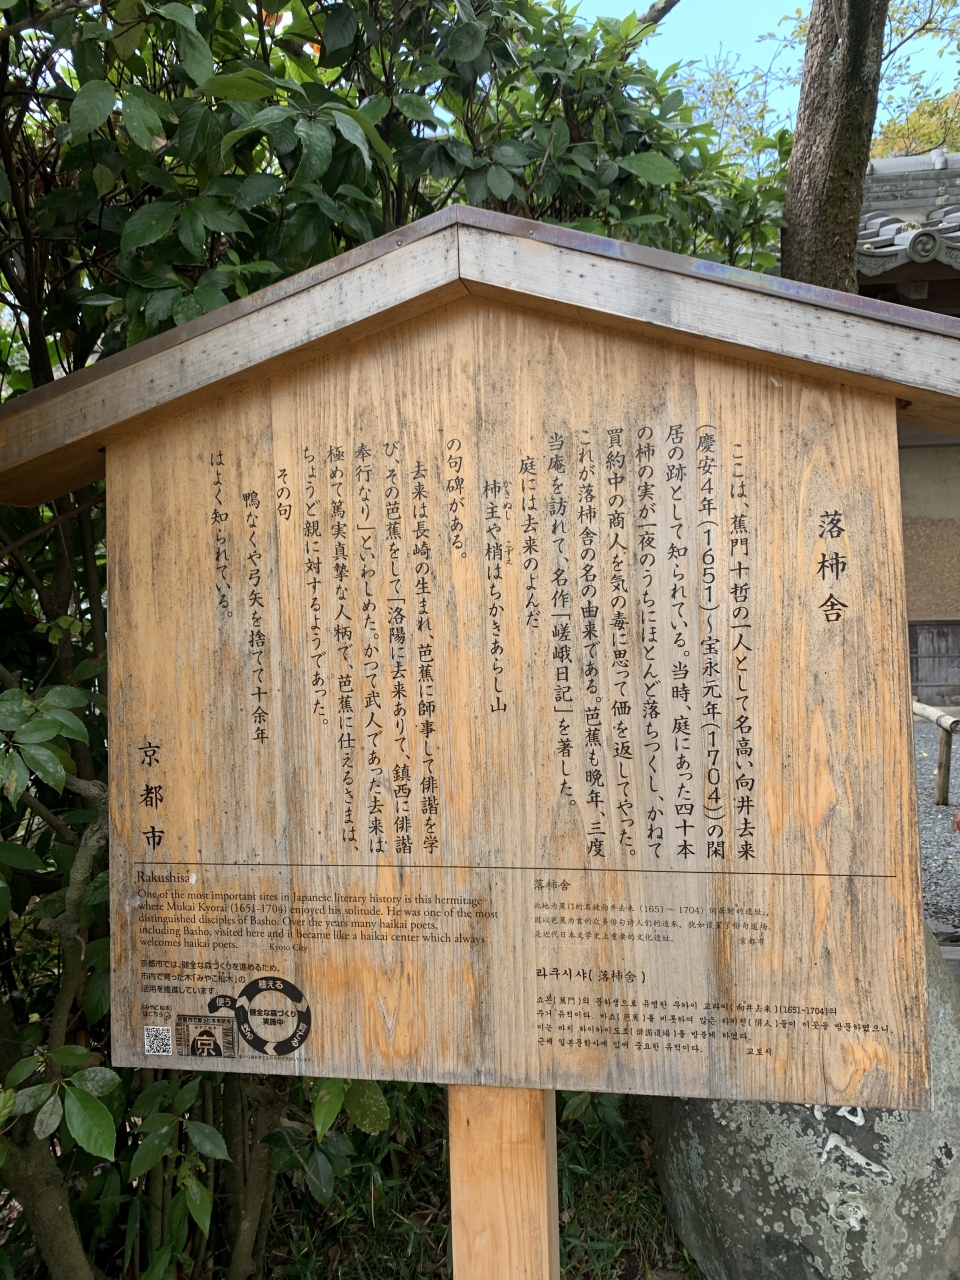 落柿舎
ここは、蕉門十哲の一人として名高い向井去来
(慶安4年(1651)〜宝永元年(1704))の閑
居の跡として知られている。当時、庭にあった四十本
の柿の実が一夜のうちにほとんど落ちつくし、かねて
買約中の商人を気の毒に思って価を返してやった。
これが落柿舎の名の由来である。芭蕉も晩年、三度
当庵を訪れて、名作「嵯峨日記」を著した。
庭には去来のよんだ
柿主や梢はちかきあらし山
かきぬし こずえ
の句碑がある。
去来は長崎の生まれ、芭蕉に師事して俳諧を学
び、その芭蕉をして「洛陽に去来ありて、鎮西に俳諧
奉行なり」といわしめた。かつて武人であった去来は
極めて篤実真摯な人柄で、芭蕉に仕えるさまは、
ちょうど親に対するようであった。
その句
鴨なくや弓矢を捨てて十余年
はよく知られている。
京都市
Rakushisa
One of the most important sites in Japanese literary history is this hermitage
where Mukai Kyorai (1651-1704) enjoyed his solitude. He was one of the most
distinguished disciples of Basho. Over the years many haikai poets,
including Basho, visited here and it became like a haikai center which always
welcomes haikai poets. Kyoto City
京都市では、健全な森づくりを進めるため、
市内で育った木「みやこ杣木」の
活用を推進しています。
みやこ杣木
はこちら
京
植える
使う
健全な森づくり
実施中
落柿舎
此地为蕉门的名徒向井去来(1651〜1704)
因以芭蕉为首的众多俳句诗人们的造访,犹如设置了俳句道场,
是近代日本文学史上重要的文化遗址。 京都市
라쿠시샤(落柿舎)
쇼몬(蕉門)의 문하생으로 유명한 무카이 교라이(向井去来)(1651~1704)의
주거 유적이다. 바쇼(芭蕉)를 비롯하여 많은 하이진(俳人)들이 이곳을 방문하였으니,
이는 마치 하이카이도조(俳諧道場)를 방불케 하였다.
근세 일본문학사에 있어 중요한 유적이다. 교토시